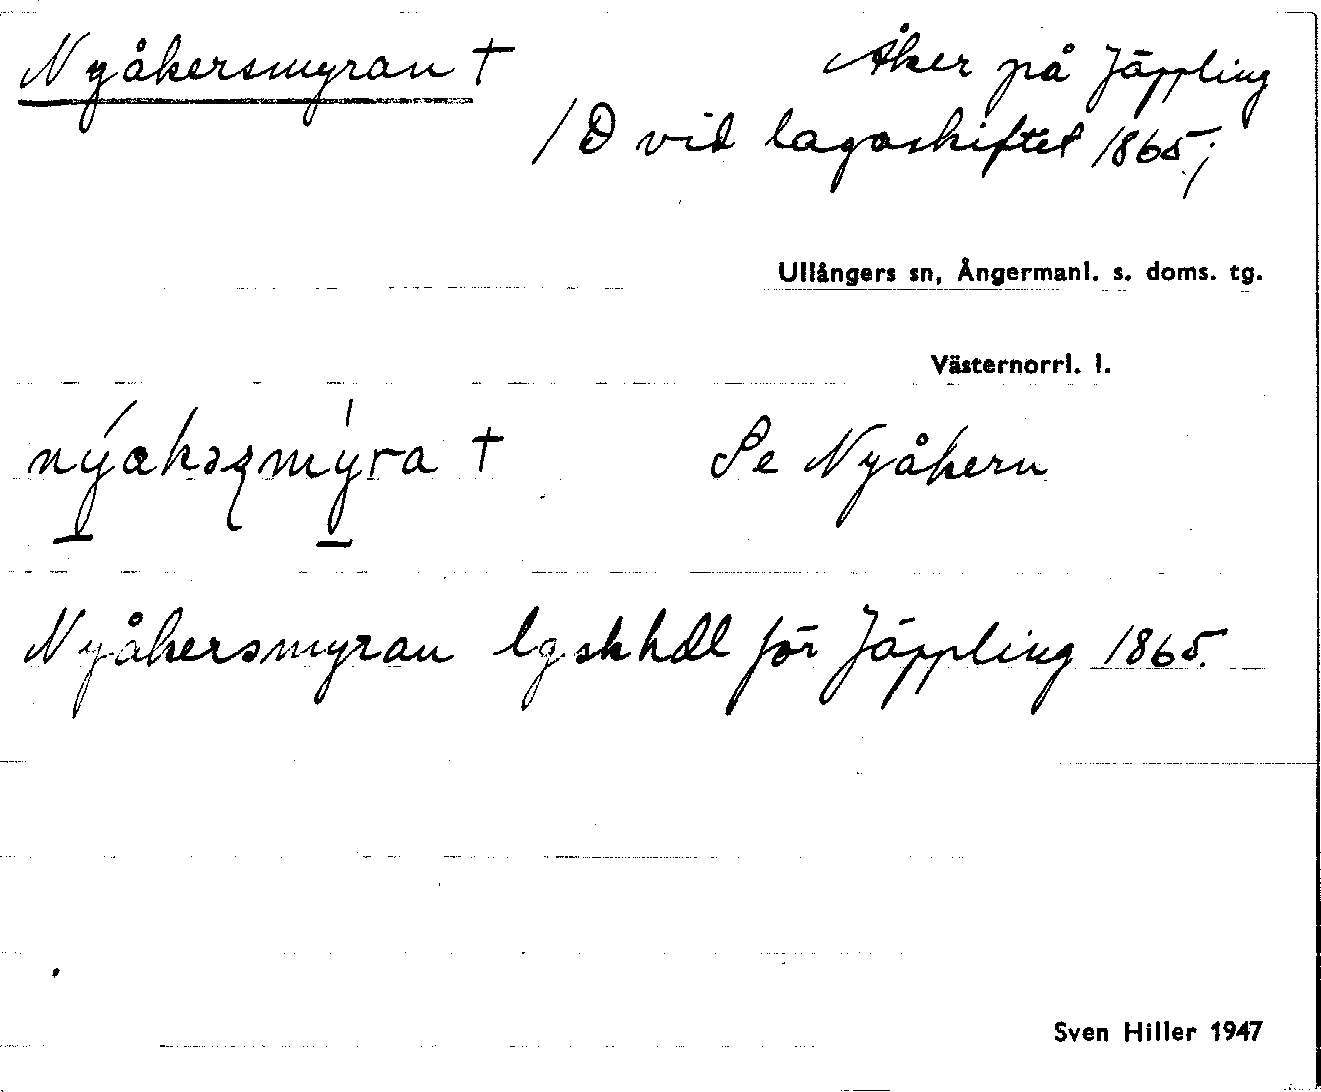 Nyåkersmyran † Åker på Jäppling
/D vid lagaskiftet 1865;
Ullångers sn, Ångermanl. s. doms. tg.
Västernorrl. l.
† Se Nyåkern
Nyåkersmyran lgskhdl för Jäppling 1865.
Sven Hiller 1947